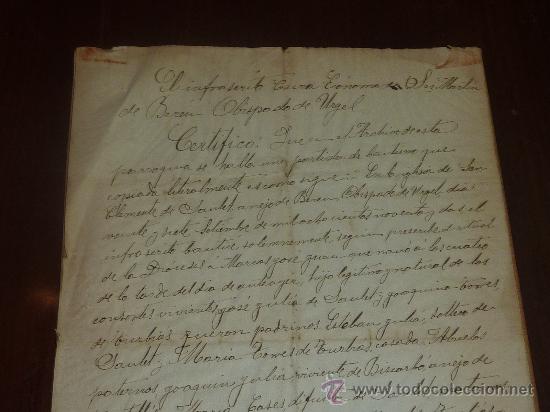 El infrascrito Cura Ecónomo de San Martin
de Beren Obispado de Urgel
Certifico: Que en el Archivo de esta
parroquia se halla una partida de bautismo que
copiada literalmente es como sigue: En la yglesia de San
Clemente de Saulet anejo de Beren Obispado de Urgel dia
veinte y siete Setiembre de mil ocho cientos noventa y dos el
infrascrito bautice solemnemente, segun presente el ritual
de la Diocesis a Marcos, José, Juan que nacio a las cuatro
de la tarde del dia de anteayer, hijo legitimo y natural de los
consortes vivientes José Julia de Saulet y Joaquina Bores
de Turbias fueron padrinos Esteban Julia soltero de
Saulet y Maria Torres de Turbias, casada. Abuelos
paternos, Joaquin Julia viviente de Biscarbó anejo de
Maria Cases difunta de
todocoleccion.net